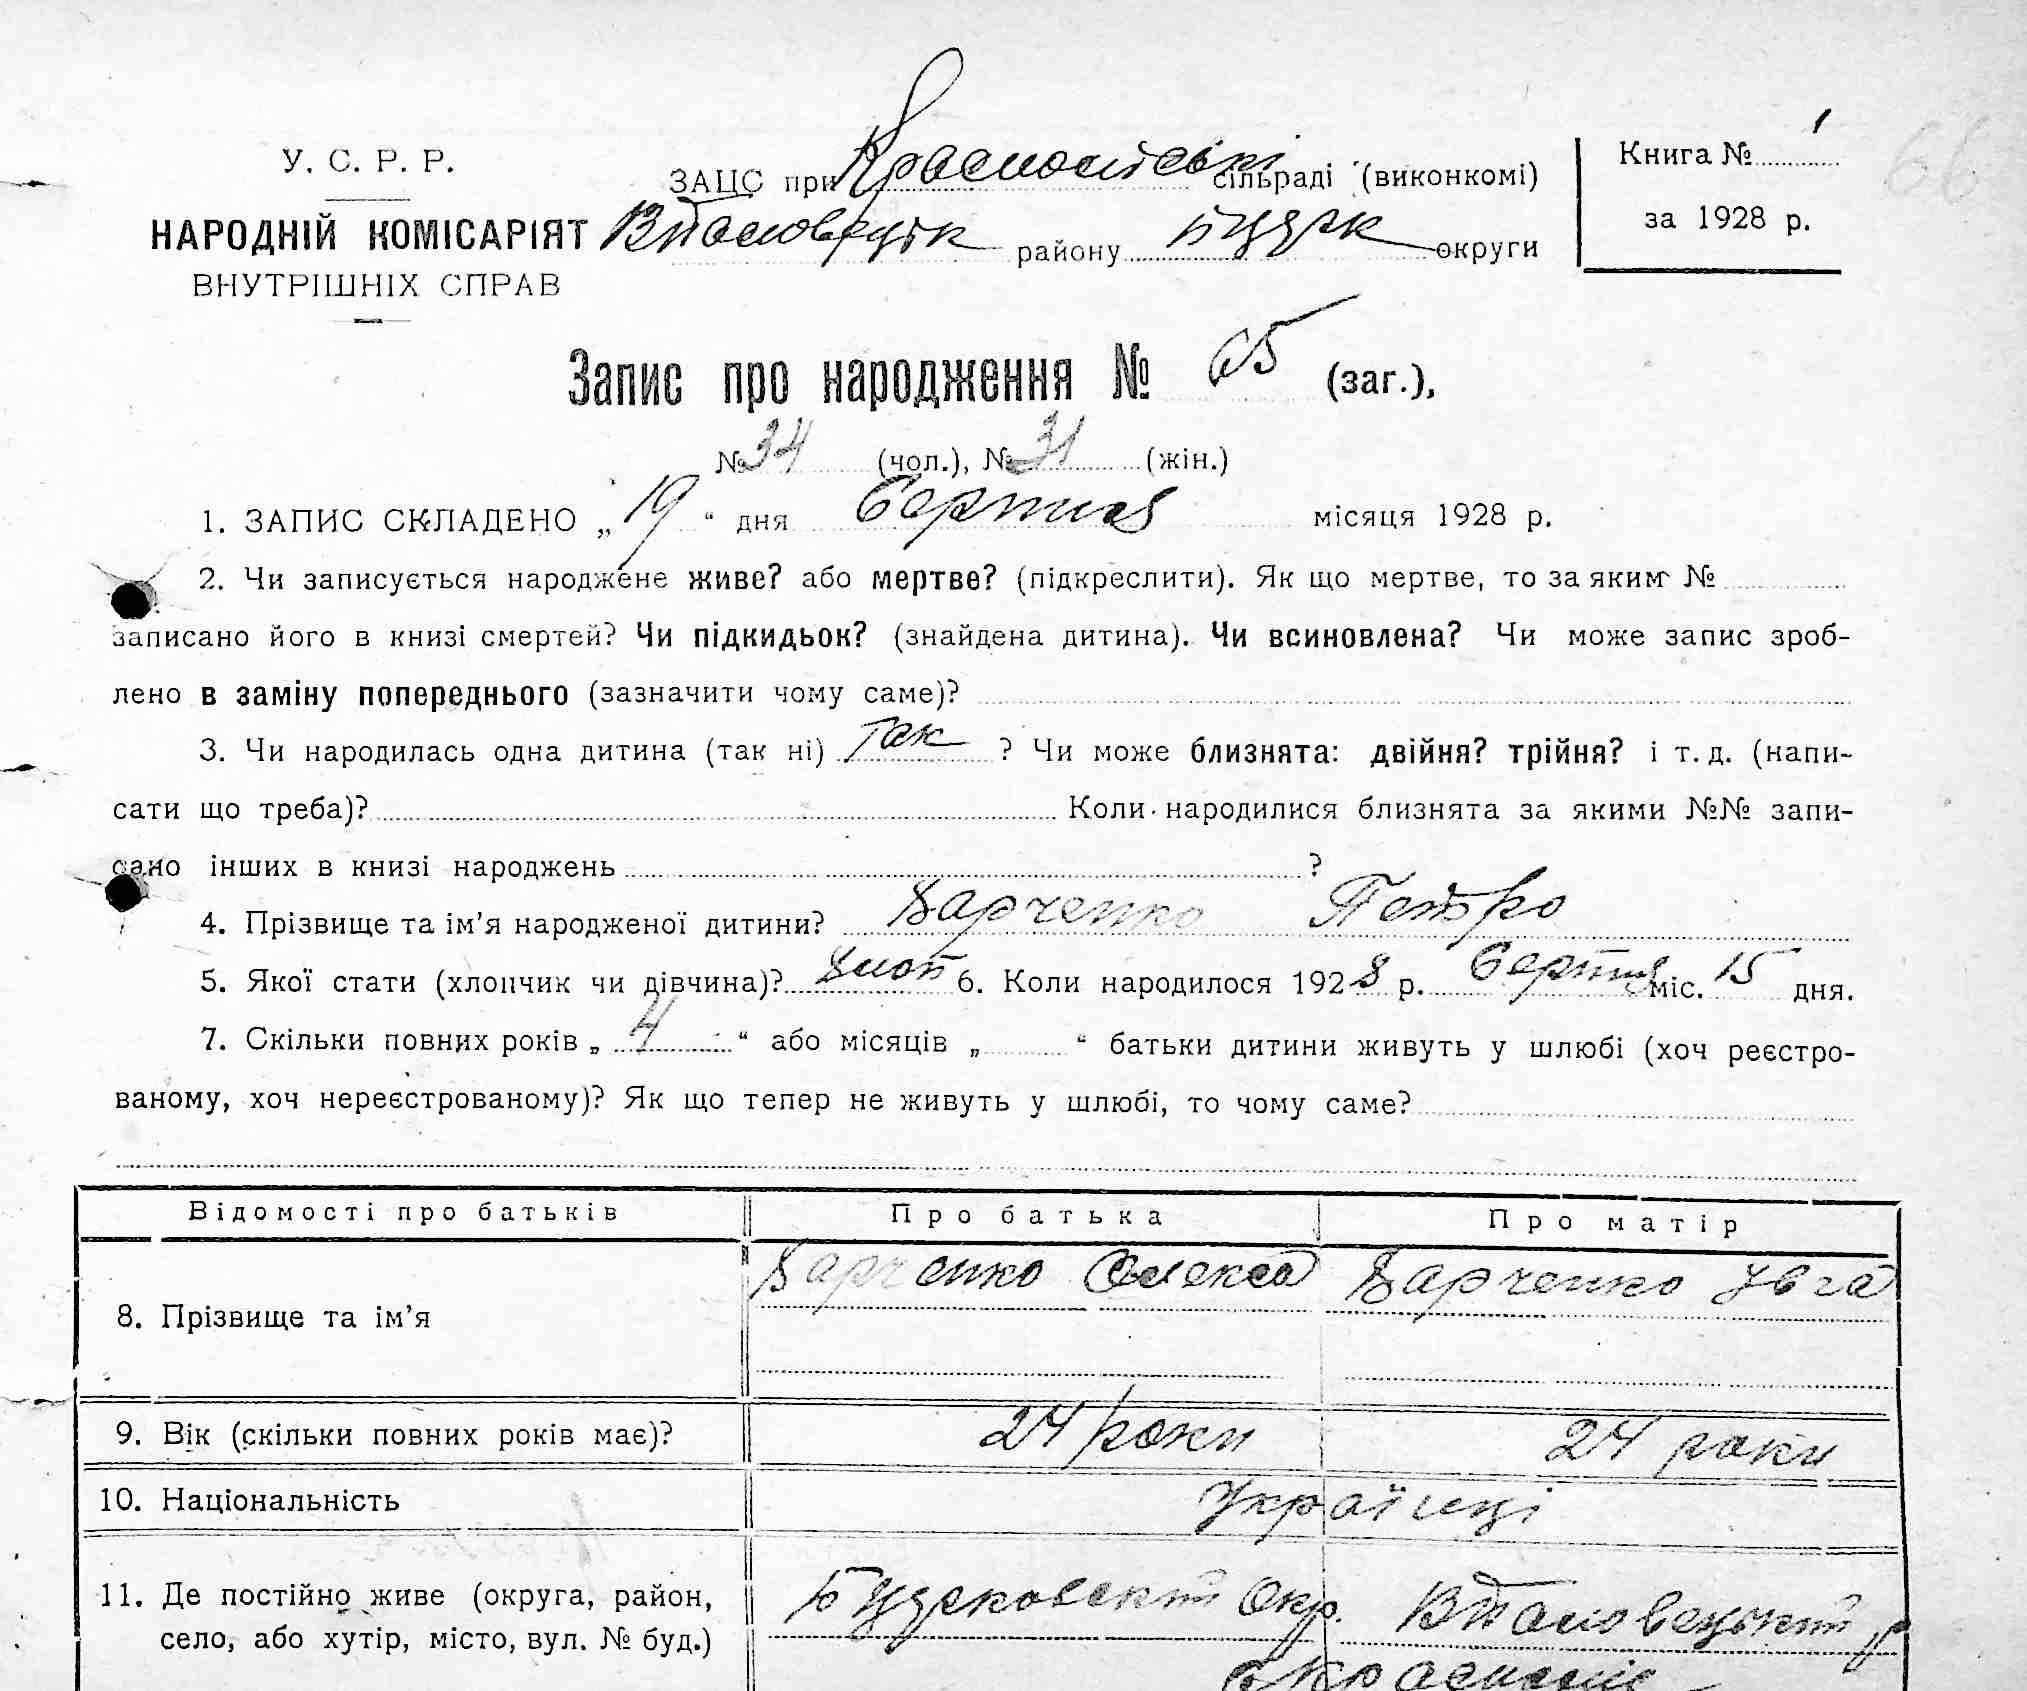 У. С. Р. Р.
НАРОДНІЙ КОМІСАРІЯТ
ВНУТРІШНІХ СПРАВ
ЗАЦС при сільраді (виконкомі)
району округи
Книга № 1
за 1928 р.
66
Запис про народження № 65 (заг.),
№ 34 (чол.), № 31 (жін.)
1. ЗАПИС СКЛАДЕНО „ 19 “ дня Серпня місяця 1928 р.
2. Чи записується народжене живе? або мертве? (підкреслити). Як що мертве, то за яким №
записано його в книзі смертей? Чи підкидьок? (знайдена дитина). Чи всиновлена? Чи може запис зроб-
лено в заміну попереднього (зазначити чому саме)?
3. Чи народилась одна дитина (так ні) так ? Чи може близнята: двійня? трійня? і т. д. (напи-
сати що треба)? Коли народилися близнята за якими №№ запи-
сано інших в книзі народжень ?
4. Прізвище та ім’я народженої дитини? Харченко Петро
5. Якої стати (хлопчик чи дівчина)? хлоп 6. Коли народилося 1928 р. Серпня міс. 15 дня.
7. Скільки повних років „ 4 “ або місяців „ “ батьки дитини живуть у шлюбі (хоч реєстро-
ваному, хоч нереєстрованому)? Як що тепер не живуть у шлюбі, то чому саме?
Відомості про батьків Про батька Про матір
8. Прізвище та ім’я Харченко Олекса Харченко Ївга
9. Вік (скільки повних років має)? 24 роки 24 роки
10. Національність Українці
11. Де постійно живе (округа, район, окр. р
село, або хутір, місто, вул. № буд.)